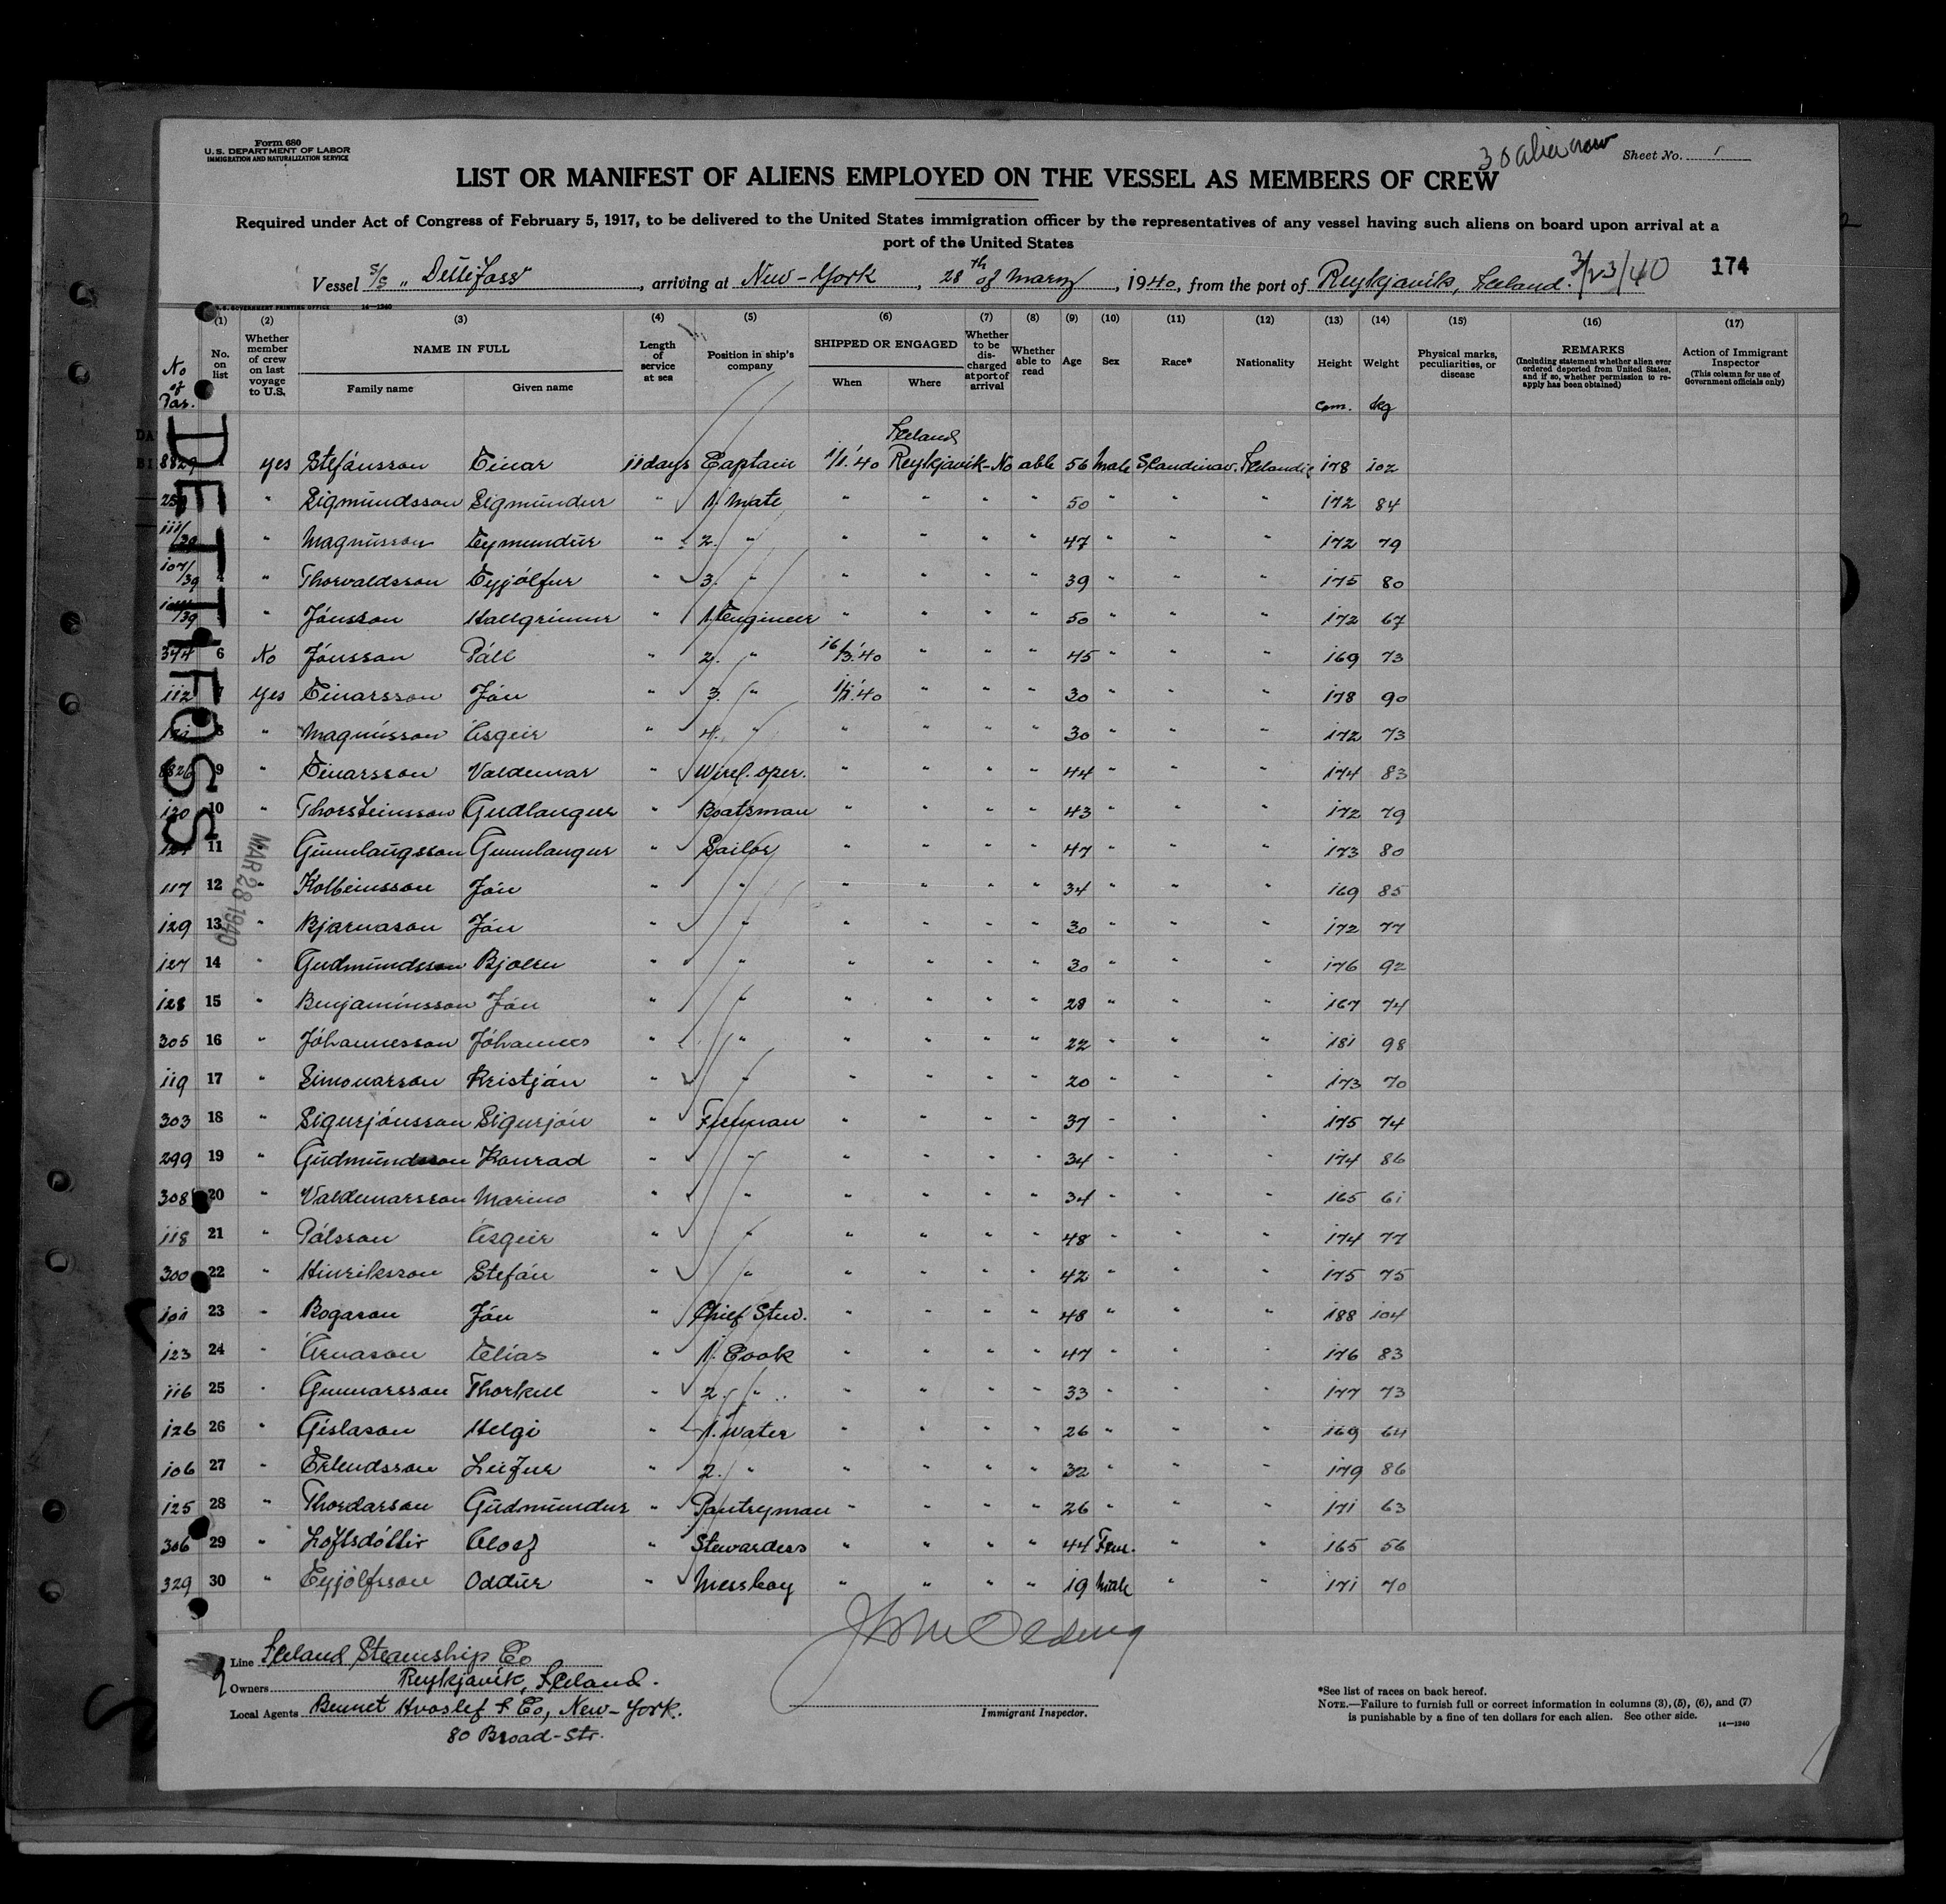 Form 680
U. S. DEPARTMENT OF LABOR
IMMIGRATION AND NATURALIZATION SERVICE
30 alien crew
Sheet No. 1
LIST OR MANIFEST OF ALIENS EMPLOYED ON THE VESSEL AS MEMBERS OF CREW
Required under Act of Congress of February 5, 1917, to be delivered to the United States immigration officer by the representatives of any vessel having such aliens on board upon arrival at a
port of the United States
Vessel S/S „ Dettifoss , arriving at New-York , 28th of March , 1940, from the port of Reykjavík, Iceland. 3/23/40 174
U. S. GOVERNMENT PRINTING OFFICE 14—1240
(1) (2) (3) (4) (5) (6) (7) (8) (9) (10) (11) (12) (13) (14) (15) (16) (17)
No of Pas. No. on list Whether member of crew on last voyage to U.S. NAME IN FULL Family name Given name Length of service at sea Position in ship's company SHIPPED OR ENGAGED When Where Whether to be discharged at port of arrival Whether able to read Age Sex Race* Nationality Height Weight Physical marks, peculiarities, or disease REMARKS (Including statement whether alien ever ordered deported from United States, and if so, whether permission to reapply has been obtained) Action of Immigrant Inspector (This column for use of Government officials only)
Cm. kg
Iceland
8829 1 yes Stefánsson Einar 11 days Captain 1/1.'40 Reykjavík - No able 56 Male Scandinav. Icelandic 178 102
" Sigmúndsson Sigmúndur " 1. Mate " " " " 50 " " " 172 84
111/39 " Magnússon Eymundúr " 2. " " " " " 47 " " " 172 79
107/39 4 " Thorvaldsson Eyjólfur " 3. " " " " " 39 " " " 175 80
/39 " Jónsson Hallgrímur " 1. Engineer " " " " 50 " " " 172 67
344 6 No Jónsson Páll " 2. " 16/3.'40 " " " 45 " " " 169 73
112 7 yes Einarsson Jón " 3. " 1/1.'40 " " " 30 " " " 178 90
8 " Magnússon Ásgeir " 4. " " " " " 30 " " " 172 73
8826 9 " Einarsson Valdemar " Wirel. oper. " " " " 44 " " " 174 83
130 10 " Thorsteinsson Gudlaugur " Boatsman " " " " 43 " " " 172 79
11 " Gunnlaúgsson Gunnlaugur " Sailor " " " " 47 " " " 173 80
117 12 " Kolbeinsson Jón " " " " " " 34 " " " 169 85
129 13 " Bjarnason Jón " " " " " " 30 " " " 172 77
127 14 " Gudmúndsson Björn " " " " " " 30 " " " 176 92
128 15 " Benjamínsson Jón " " " " " " 28 " " " 167 74
305 16 " Jóhannesson Jóhannes " " " " " " 22 " " " 181 98
119 17 " Símonarson Kristján " " " " " " 20 " " " 173 70
303 18 " Sigurjónsson Sigurjón " Fireman " " " " 37 " " " 175 74
299 19 " Gúdmúndsson Konrad " " " " " " 34 " " " 174 86
308 20 " Valdemarsson Marino " " " " " " 34 " " " 165 61
118 21 " Pálsson Ásgeir " " " " " " 48 " " " 174 77
300 22 " Hinriksson Stefán " " " " " " 42 " " " 175 75
101 23 " Bogason Jón " Chief Stew. " " " " 48 " " " 188 104
123 24 " Árnason Elías " 1. Cook " " " " 47 " " " 176 83
116 25 " Gunnarsson Thorkell " 2. " " " " " 33 " " " 177 73
126 26 " Gíslason Helgi " 1. Water " " " " 26 " " " 169 64
106 27 " Erlendsson Leifur " 2. " " " " " 32 " " " 179 86
125 28 " Thordarson Gúdmúndur " Pantryman " " " " 26 " " " 171 63
306 29 " Loftsdóttir " Stewardess " " " " 44 Fem. " " 165 56
329 30 " Eyjólfsson Oddúr " Messboy " " " " 19 Male " " 171 70
DETTIFOSS
MAR 28 1940
Line Iceland Steamship Co
Owners Reykjavík, Iceland.
Local Agents Bennet Hvoslef & Co, New-York.
80 Broad-Str.
Immigrant Inspector.
*See list of races on back hereof.
NOTE.—Failure to furnish full or correct information in columns (3), (5), (6), and (7)
is punishable by a fine of ten dollars for each alien. See other side.
14—1240